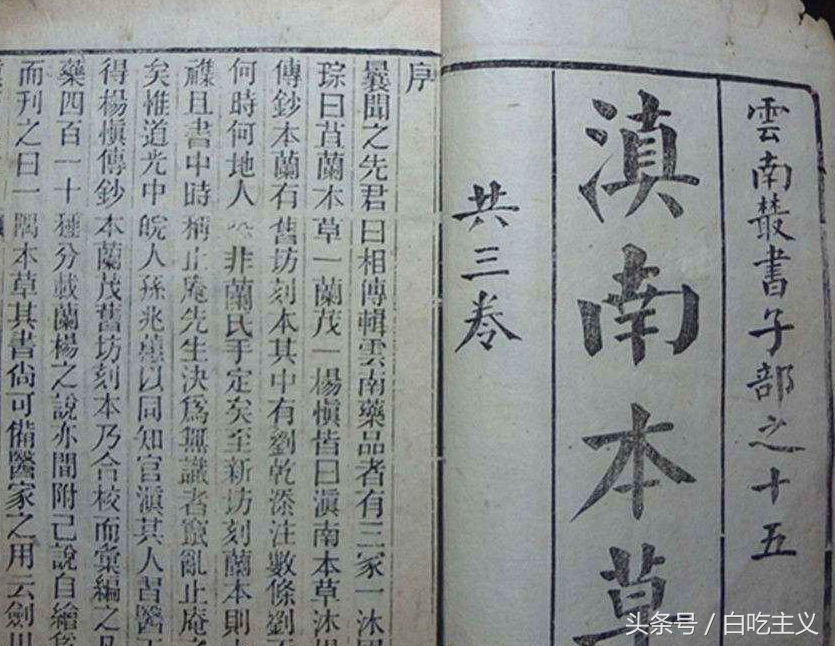 雲南叢書子部之十五
滇南本草
共三卷
序
曩聞之先君曰相傳輯雲南藥品者有三家一沐國
琮曰苴蘭本草一蘭茂一楊慎皆曰滇南本草沐
傳鈔本蘭有舊坊刻本其中有劉乾添注數條劉
何時何地人非蘭氏手定矣至新坊刻蘭本則
襍且書中時稱止庵先生決爲無識者竄亂止庵
矣惟道光中皖人孫兆蕙以同知官滇其人習醫
得楊慎傳鈔本蘭茂舊坊刻本乃合校而彙編之凡
藥四百一十種分載蘭楊之說亦間附己說自繪
而刊之曰一隅本草其書尚可備醫家之用云劍川
头条号 / 白吃主义